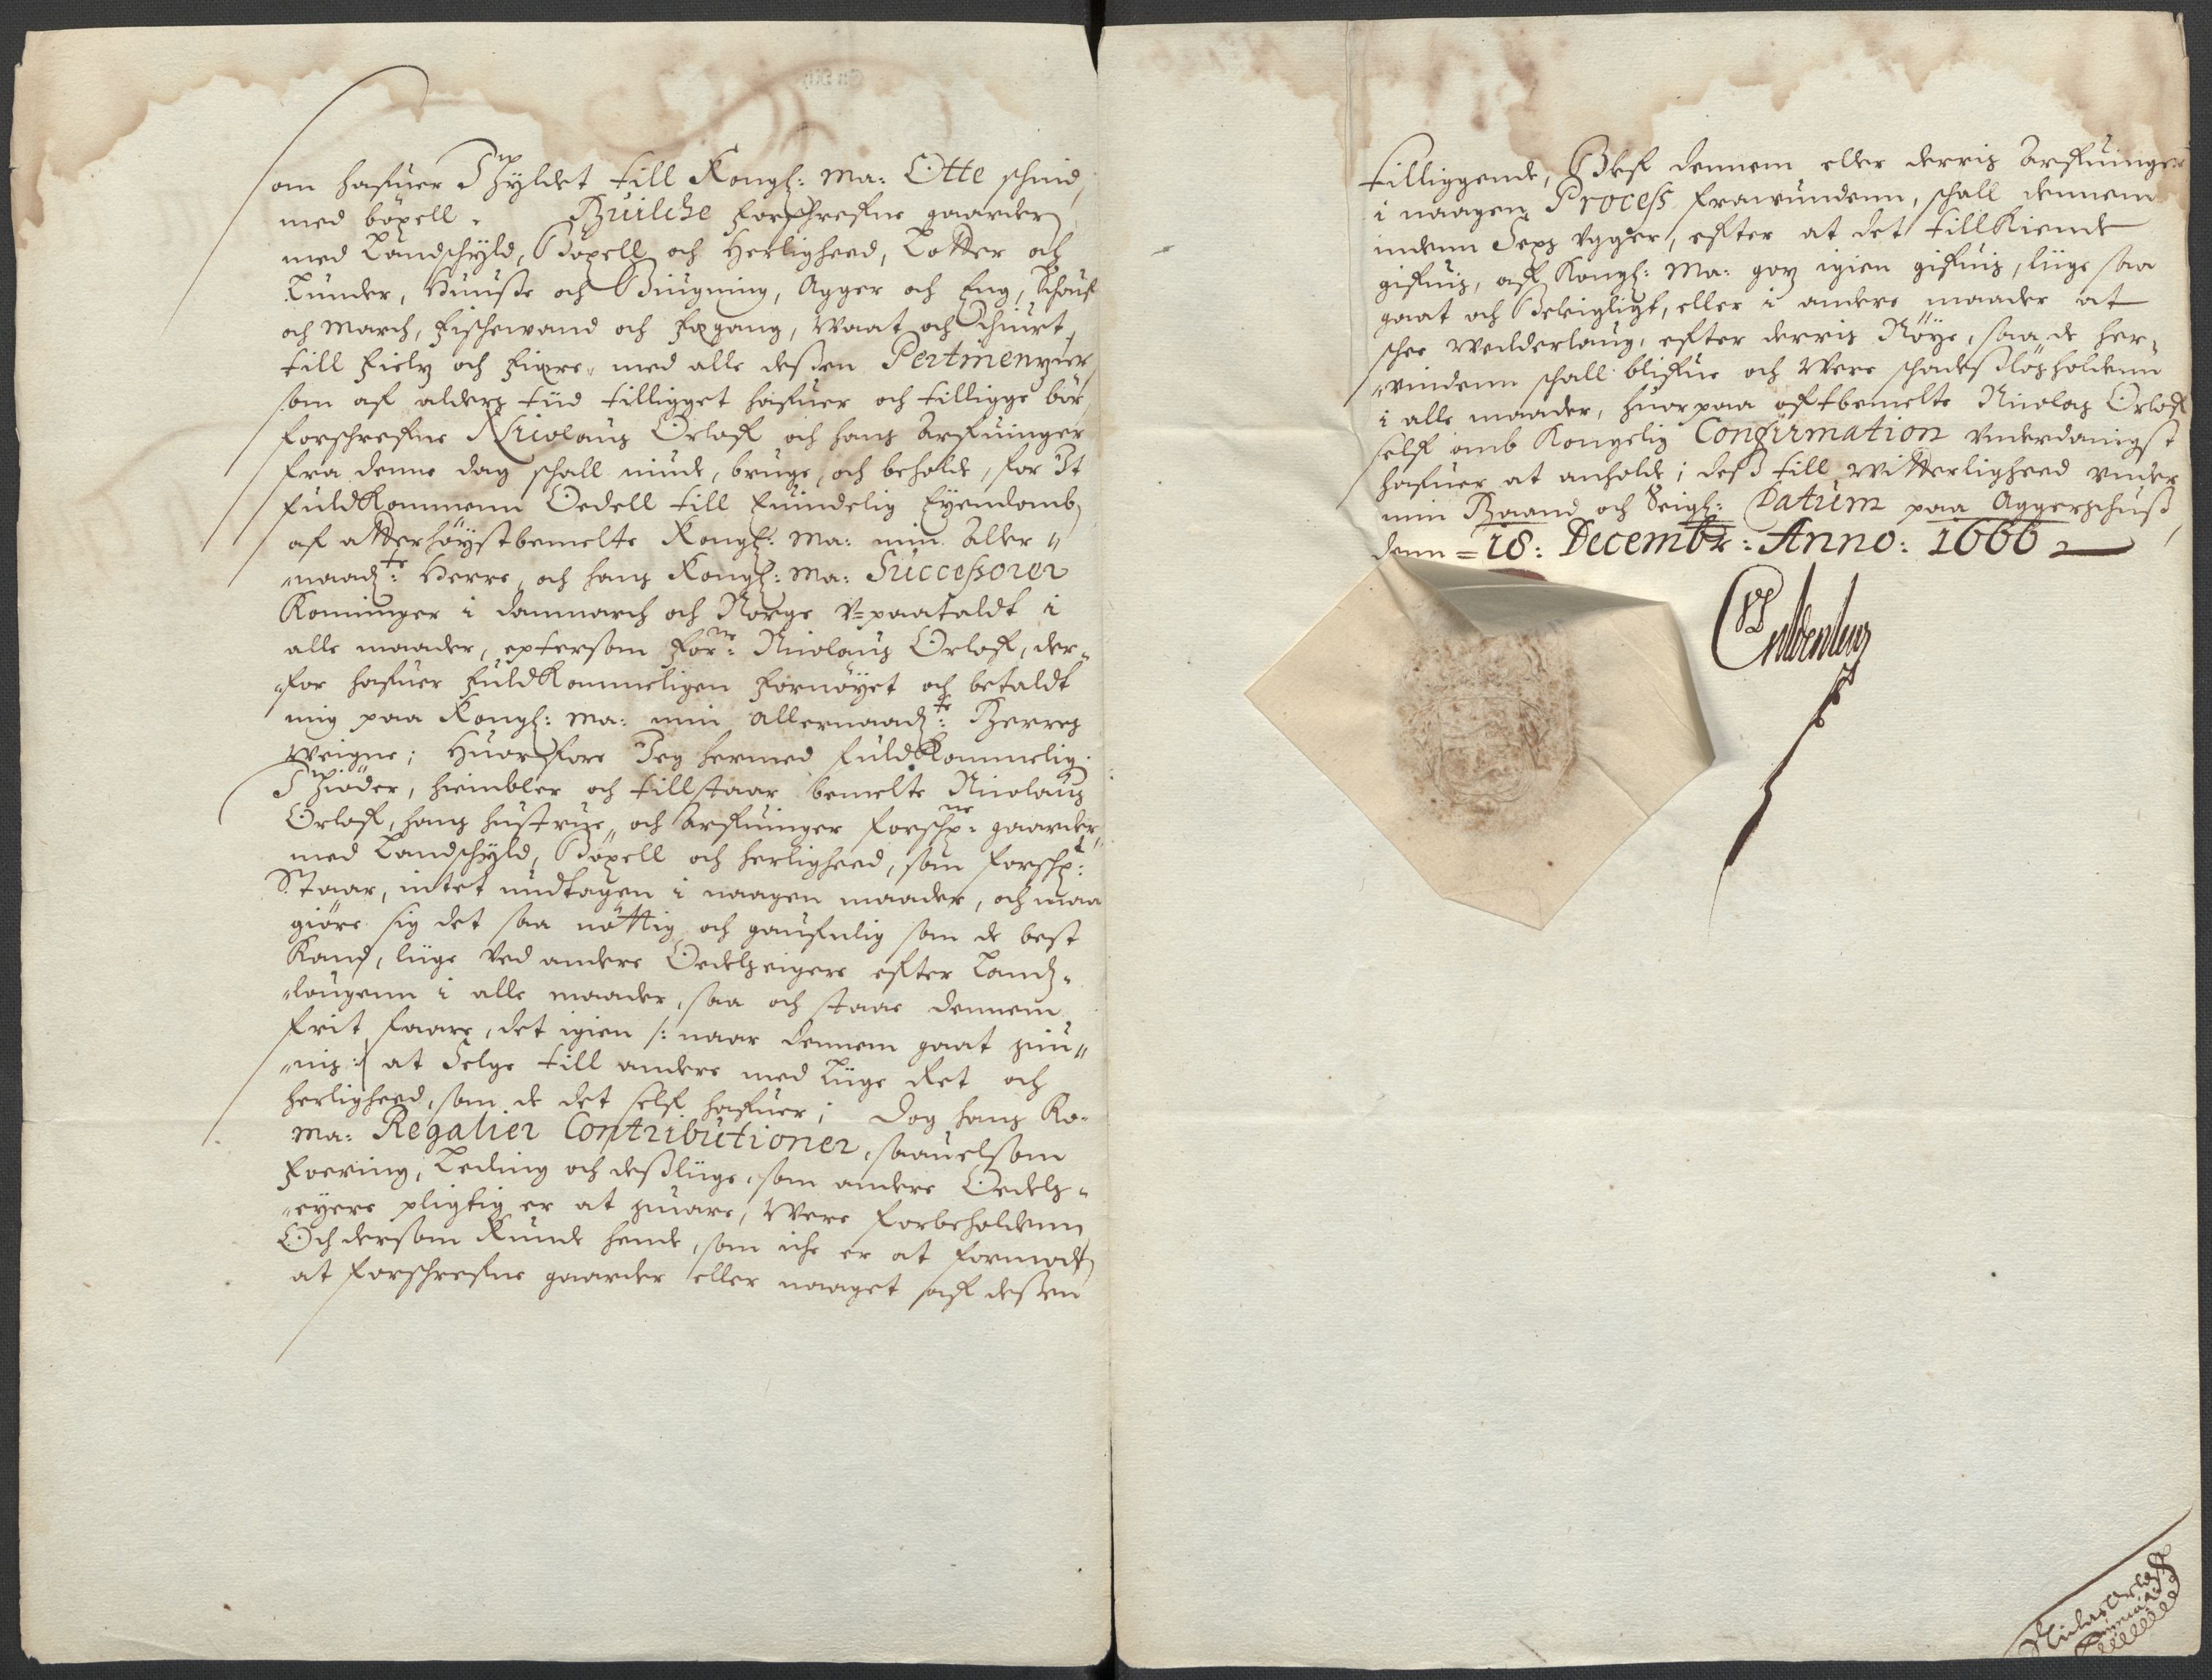 om hafuer Schyldet till Kongl: Ma: Otte schind,
med böxell. Huilche forschrefne gaarder
med Landschyld, Böxell och Herlighed, Lotter och
Lunder, Huuse och Biugning, Agger och Eng, Schouf
och March, Fischewand och Fægang, Waat och Thiurt,
till Fielz och Fiære, med alle dessen Pertinenzier
som af alders tiid tilligget hafuer och tilligge bör
forschrefne Nicolaus Orloff och hans Arfuinger
fra denne dag schall niude, bruge, och beholde, for It
fuldkommenn Oedell till Euindelig Eyendomb,
af Allerhöystbemelte Kongl: Ma: min Aller"
"naadste: Herre, och hans Kongl: Ma: Successorer
Koninger i Danmarch och Norge V=paataldt i
alle maader, eftersom forne: Nicolaus Orloff, der"
"for hafuer fuldkommeligen fornöyet och betaldt
mig paa Kongl: Ma: min allernaadste: Herres
weigne; Huorfore Jeg hermed fuldkommelig
Schiöder, hiembler och tillstaar bemelte Nicolaus
Orloff, hans hustrue, och Arfuinger forschne: gaarder,
med Landschyld, Böxell och herlighed, som forsch:
Staar, intet undtagen i naagen maader, och maa
giöre sig det saa nöttig och gaufnlig som de best
Kand, liige Ved andere Oedelseigere efter Landz"
"lougenn i alle maader, saa och staar dennem
frit faare, det igien /: naar dennem gaat siu"
"nis :/ at Selge till andere med Liige Ret och
herlighed, som de det self hafuer; Dog hans Ko:
Ma: Regalier Contributioner, saauelsom
Foering, Leding och dessliige, som andere Oedels"
"eyere pligtig er at suare, Were forbeholdenn,
Och dersom Kunde hende, som iche er at formode,
at forschrefne gaarder eller naaget af dessen
tilliggende, Blef dennem eller derris Arfuinger
i naagen Process frawundenn, schall dennem
indenn Sexs Vgger, efter at det tillkiende
gifuis, aff Kongl: Ma: gotz igien gifuis, liige saa
gaat och Beleigligt, eller i andere maader at
schee wedderlaug, efter derris Nöye, saa de her"
"vindenn schall blifue och Were schadeslösholdenn
i alle maader, huorpaa oftbemelte Nicolas Orloff
self omb Kongelig Confirmation vnderdanigst
hafuer at anholde; dess till Witterlighed vnder
min Haand och Seigl: Datum paa Aggershuuss
denn = 18: Decembr: Anno: 1666
Nicholas Orloff